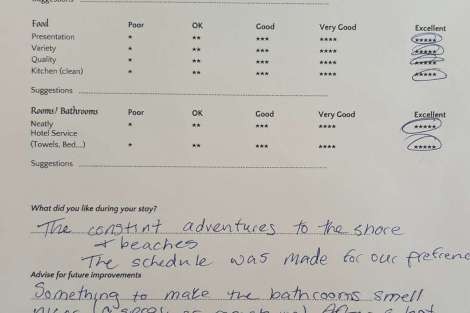 Suggestions
Food Poor OK Good Very Good Excellent
Presentation * ** *** **** *****
Variety * ** *** **** *****
Quality * ** *** **** *****
Kitchen (clean) * ** *** **** *****
Suggestions
Rooms/ Bathrooms Poor OK Good Very Good Excellent
Neatly * ** *** **** *****
Hotel Service
(Towels, Bed...) * ** *** **** *****
Suggestions
What did you like during your stay?
The constint adventures to the shore
+ beaches
The schedule was made for our prefrence
Advise for future improvements
Something to make the bathrooms smell